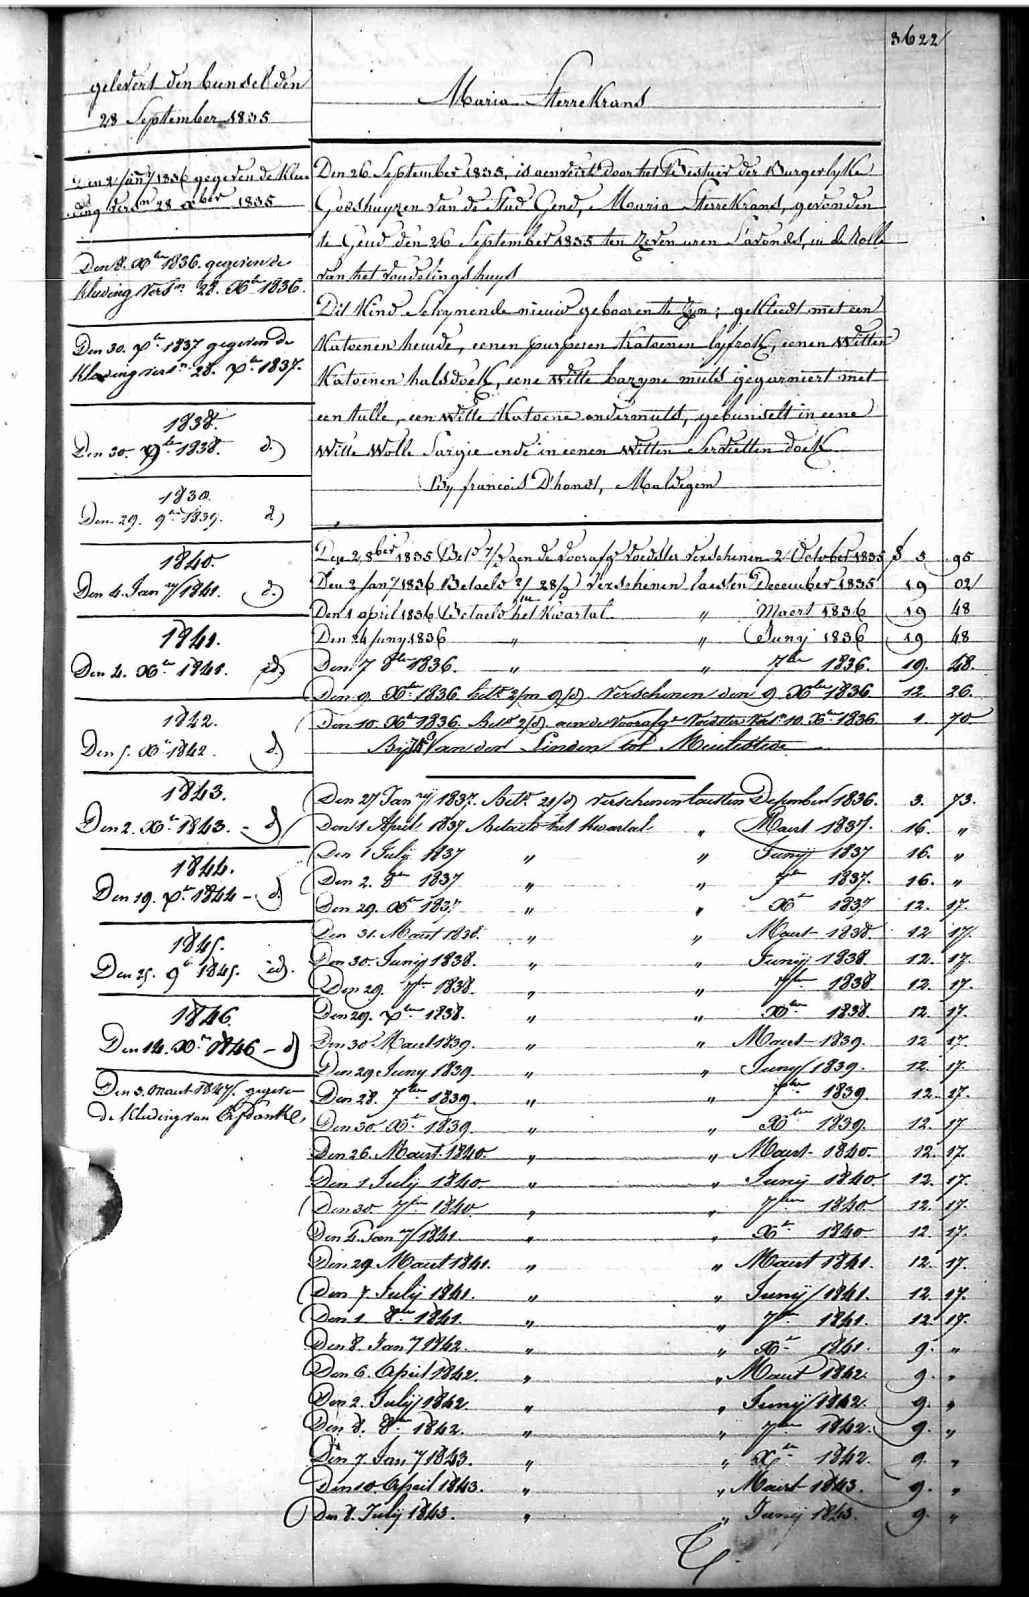 3622
gelevert den bunsel den
28 September 1835
Maria Sterrekrans
Den 2 Jany 1836 gegeven de Klee-
ding versn 28 xber 1835
Den 8. Xbr 1836. gegeven de
kleeding versn 28. Xbr 1836.
Den 30. Xbr 1837 gegeven de
kleeding versn 28. Xbr 1837.
1838.
Den 30. Xbr 1838. d)
1839.
Den 29. 9br 1839. d)
1840.
Den 4. Jany 1841. d)
1841.
Den 4. Xbr 1841. id)
1842.
Den 5. Xbr 1842. d)
1843.
Den 2. Xbr 1843. - d)
1844.
Den 19. Xbr 1844 - d)
1845.
Den 25. 9br 1845. id.
1846.
Den 14. Xbr 1846 - d)
Den 3. Maart 1847. gegeven
de kleeding van
Den 26 September 1835, is aenveird door het Bestuer der Burgerlyke
Godshuyzen van de Stad Gend, Maria Sterrekrans, gevonden
te Gend den 26 September 1835 ten zeven uren s'avonds, in de Rolle
van het vondelingshuys
Dit Kind Schynende nieuw gebooren te zyn; gekleedt met een
Katoenen hemde, eenen purperen Katoenen lyfrok, eenen Witten
Katoenen halsdoek, eene Witte bazyne muts gegarniert met
een tulle, een Witte Katoene ondermuts, gebunselt in eene
Witte Wolle Sargie ende in eenen Witten Servietten doek
By francois D'hondt, Maldegem
Den 2 8ber 1835 Betd 7/d aen de voorafge voedster verschenen 2 October 1835 f 3 95
Den 2 Jany 1836 Betaeld 2/m 28/d verschenen laesten December 1835 19 02
Den 1 april 1836 Betaeld het Kwartal " Maert 1836 19 48
Den 24 Juny 1836 " " Juny 1836 19 48
Den 7 8br 1836. " " 7ber 1836. 19. 48
Den 9. Xbr 1836 betd 2/m 9/d. verschenen den 9 Xber 1836 12. 26.
Den 10. Xbr 1836. betd 2/d. aen de voorafge Voedster versn 10. Xbr 1836. 1. 70
Bij Van der Linden tot Meulestede
Den 27 Jany 1837. Betd 21/d verschenen laesten December 1836. 3. 73.
Den 1 April 1837 Betaeld het Kwartal " Maert 1837. 16. "
Den 1 July 1837 " " Junij 1837 16. "
Den 2. 8br 1837 " " 7br 1837. 16. "
Den 29. Xbr 1837. " " Xbr 1837 12. 17.
Den 31. Maert 1838. " " Maert 1838. 12 17.
Den 30. Junij 1838. " " Junij 1838. 12. 17.
Den 29. 7br 1838. " " 7br 1838 12. 17.
Den 29. Xber 1838. " " Xber 1838. 12. 17.
Den 30 Maert 1839. " " Maert 1839. 12 17.
Den 29 Juny 1839. " " Juny 1839. 12. 17.
Den 28. 7ber 1839. " " 7ber 1839. 12. 17.
Den 30. Xbr 1839. " " Xber 1839. 12. 17
Den 26. Maert 1840. " " Maert 1840. 12. 17.
Den 1 July 1840. " " Junij 1840. 12. 17.
Den 30 7br 1840. " " 7ber 1840. 12. 17.
Den 4. Jany 1841. " " Xbr 1840. 12. 17.
Den 29. Maert 1841. " " Maert 1841. 12. 17.
Den 7 Julij 1841. " " Junij 1841. 12. 17.
Den 1. 8br 1841. " " 7br 1841. 12. 17.
Den 8. Jany 1842. " " Xbr 1841. 9. "
Den 6. April 1842. " " Maert 1842. 9. "
Den 2. Julij 1842. " " Junij 1842. 9. "
Den 8. 8br 1842. " " 7ber 1842. 9. "
Den 7. Jany 1843. " " Xbr 1842. 9. "
Den 10. April 1843. " " Maert 1843. 9. "
Den 8. Julij 1843. " " Junij 1843. 9. "